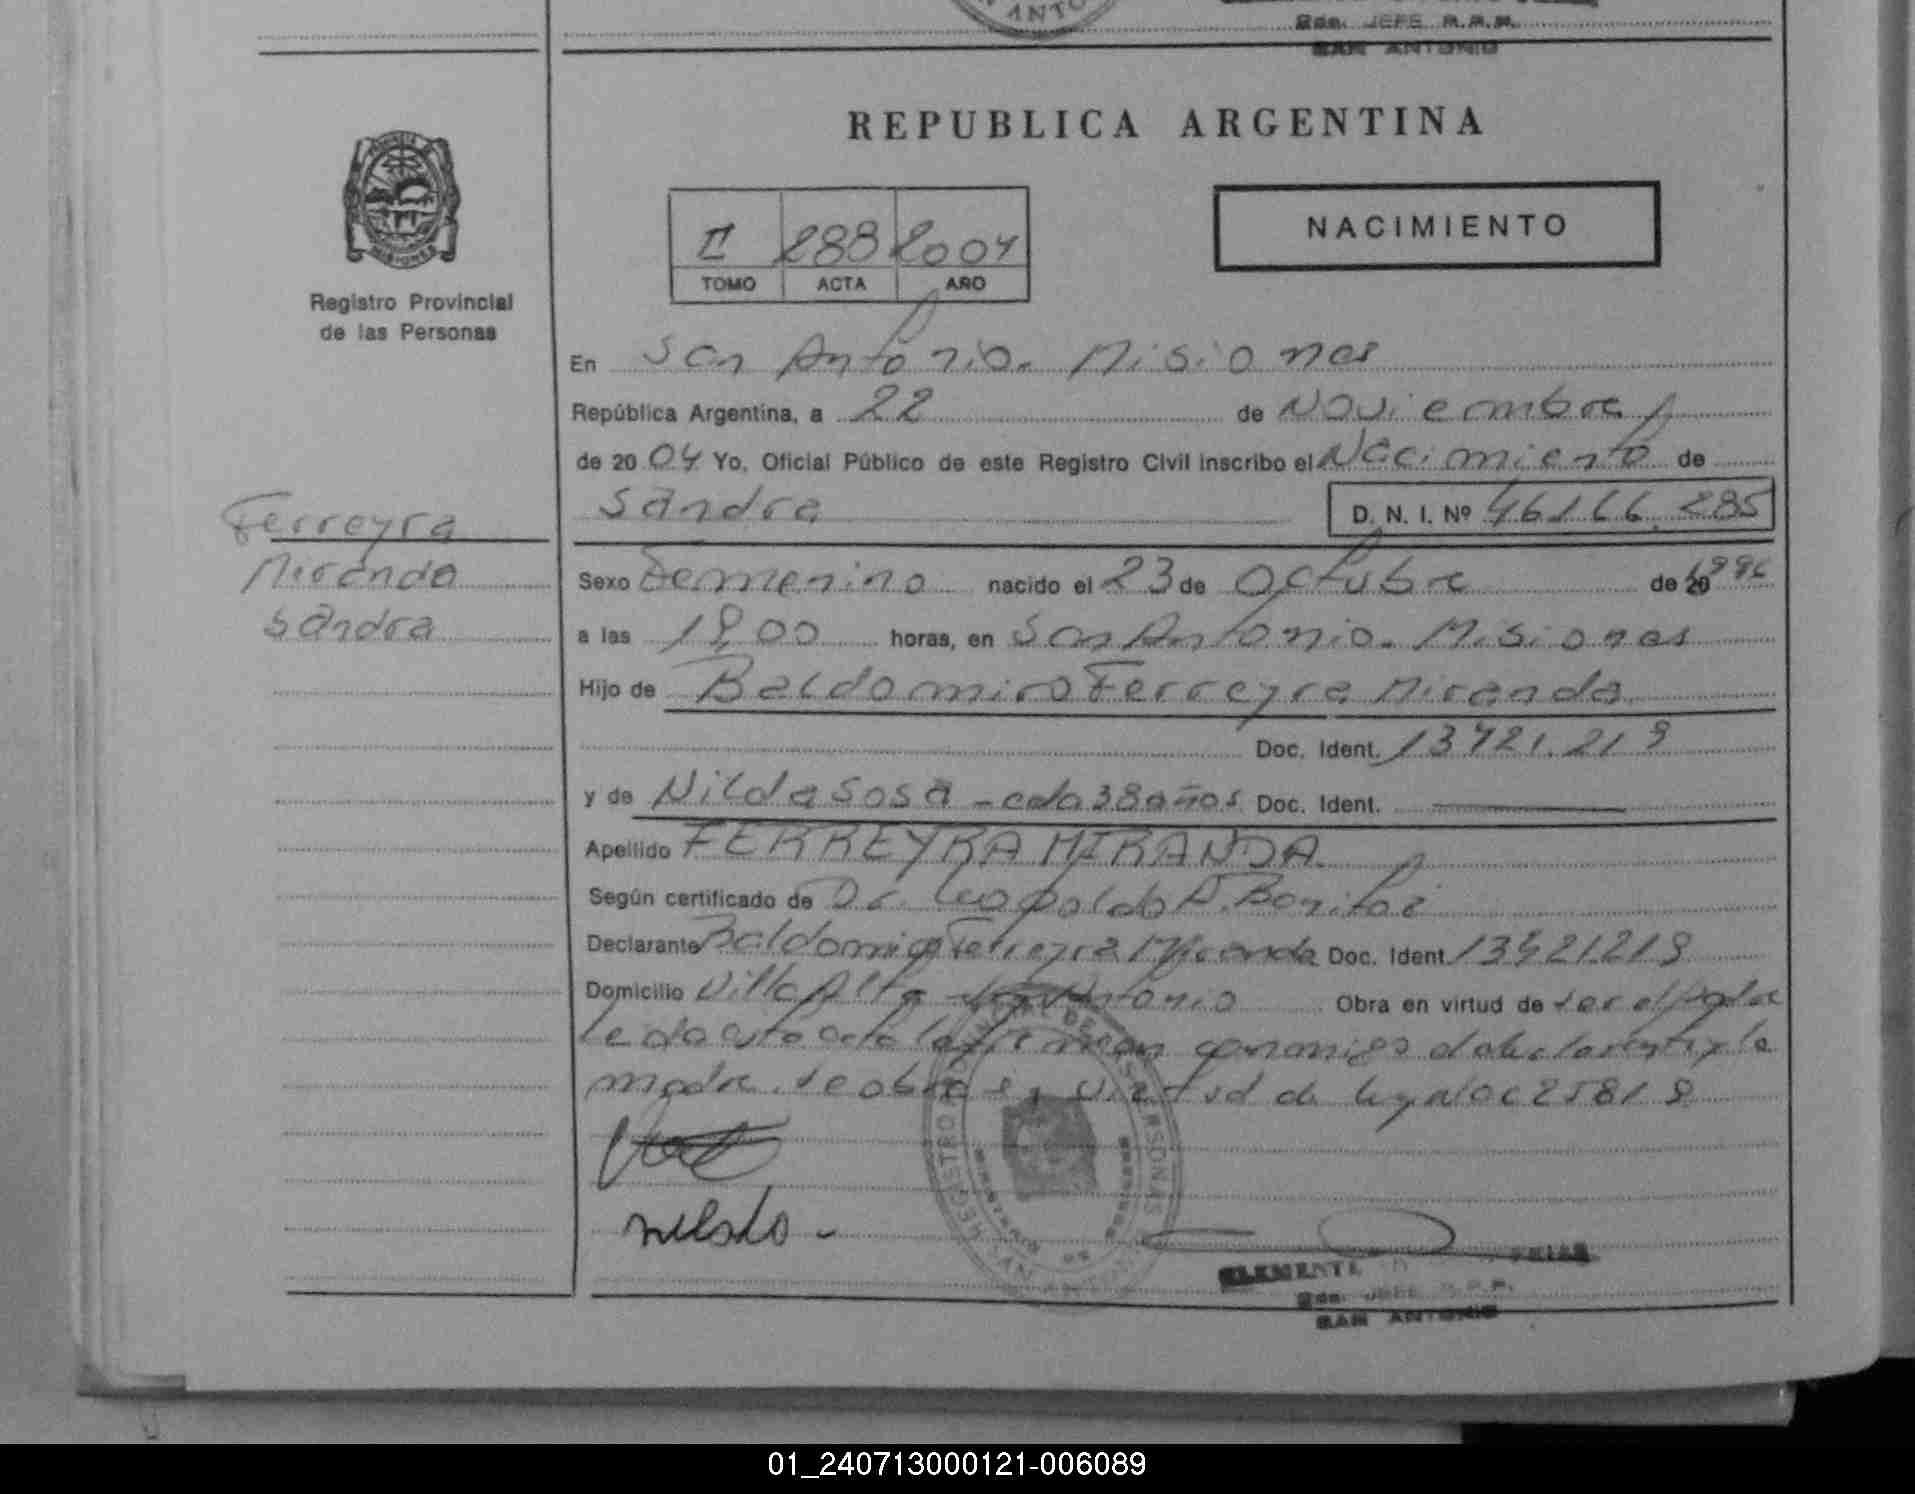 Gde. JEFE R.P.P.
SAN ANTONIO
REPUBLICA ARGENTINA
PROVINCIA DE
MISIONES
Registro Provincial
de las Personas
II 288 2004
TOMO ACTA AÑO
NACIMIENTO
En San Antonio. Misiones
República Argentina, a 22 de Noviembre
de 20 04 Yo, Oficial Público de este Registro Civil inscribo el Nacimiento de
Sandra D. N. I. Nº 46.166.285
Ferreyra
Miranda
Sandra
Sexo Femenino nacido el 23 de Octubre de 20 1996
a las 18,00 horas, en San Antonio. Misiones
Hijo de Baldomiro Ferreyra Miranda
Doc. Ident. 13421.219
y de Nilda Sosa - edo 38 años Doc. Ident.
Apellido FERREYRA MIRANDA
Según certificado de Dr. Leopoldo A.
Declarante Baldomiro Ferreyra Miranda Doc. Ident. 13421219
Domicilio Villa Alta San Antonio Obra en virtud de ser el padre
Leida esta acta la firman conmigo el declarante y la
madre. Se obra en virtud de ley 25819
nelsto -
CLEMENTE
Gde. JEFE R.P.P.
SAN ANTONIO
01_240713000121-006089